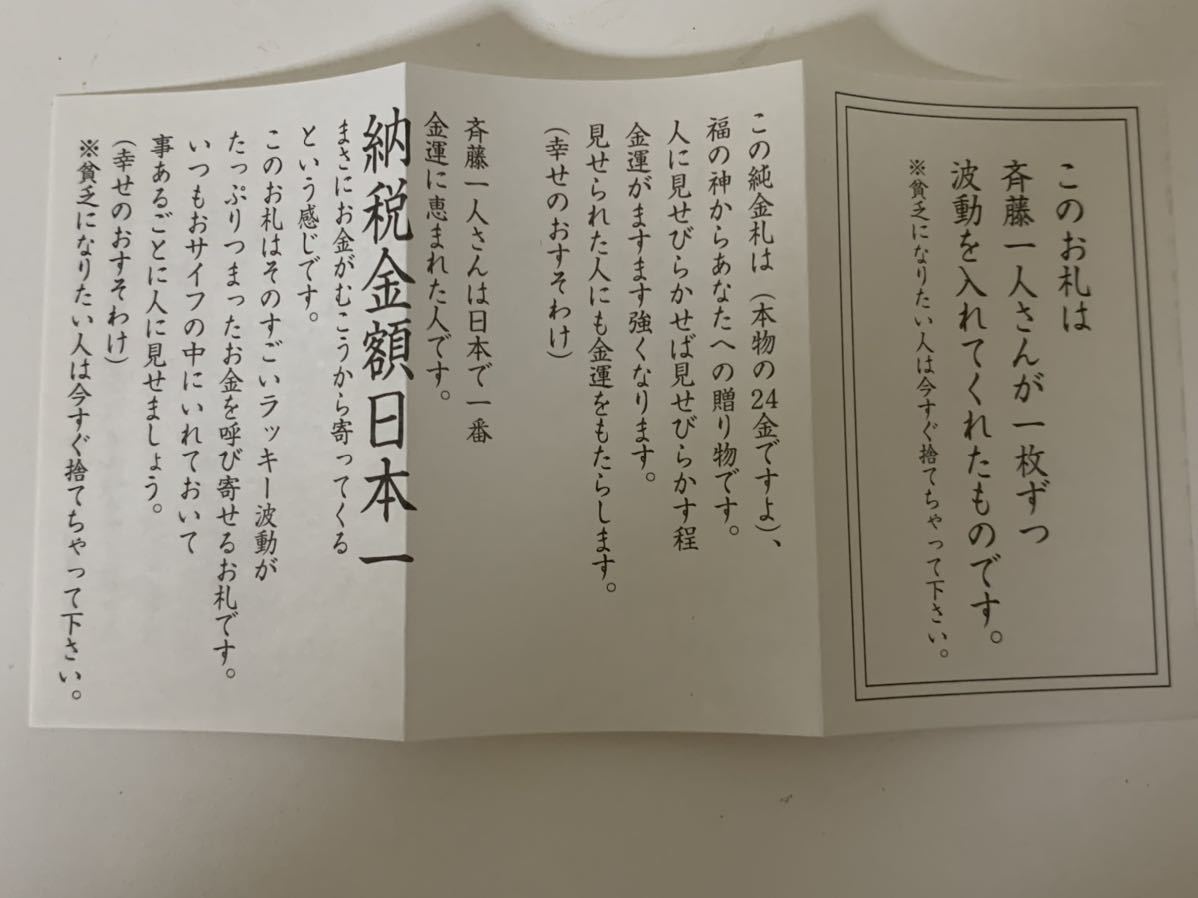 このお札は
斉藤一人さんが一枚ずつ
波動を入れてくれたものです。
※貧乏になりたい人は今すぐ捨てちゃって下さい。
この純金札は（本物の24金ですよ）、
福の神からあなたへの贈り物です。
人に見せびらかせば見せびらかす程
金運がますます強くなります。
見せられた人にも金運をもたらします。
（幸せのおすそわけ）
斉藤一人さんは日本で一番
金運に恵まれた人です。
納税金額日本一
まさにお金がむこうから寄ってくる
という感じです。
このお札はそのすごいラッキー波動が
たっぷりつまったお金を呼び寄せるお札です。
いつもおサイフの中にいれておいて
事あるごとに人に見せましょう。
（幸せのおすそわけ）
※貧乏になりたい人は今すぐ捨てちゃって下さい。